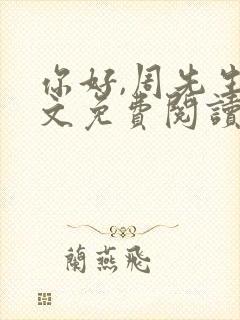 你好,周先生
文免費閱讀
蘭燕飛